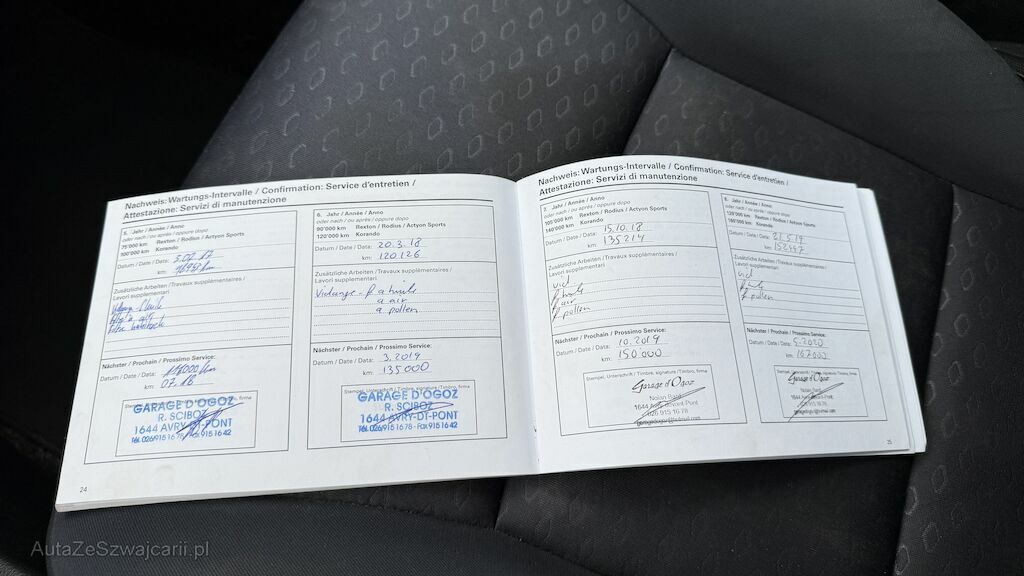 Nachweis: Wartungs-Intervalle / Confirmation: Service d'entretien /
Attestazione: Servizi di manutenzione
5. Jahr / Année / Anno
oder nach / ou après / oppure dopo
75'000 km Rexton / Rodius / Actyon Sports
100'000 km Korando
Datum / Date / Data: 5.07.17
km:
Zusätzliche Arbeiten / Travaux supplémentaires /
Lavori supplementari
Nächster / Prochain / Prossimo Service:
Datum / Date / Data:
km: 07.18
Stempel, Unterschrift / Timbre, signature / Timbro, firma
GARAGE D'OGOZ
R. SCIBOZ
1644 AVRY-DT-PONT
Tél. 026/915 16 78 - Fax 915 16 42
24
6. Jahr / Année / Anno
oder nach / ou après / oppure dopo
90'000 km Rexton / Rodius / Actyon Sports
120'000 km Korando
Datum / Date / Data: 20.3.18
km: 120126
Zusätzliche Arbeiten / Travaux supplémentaires /
Lavori supplementari
Vidange - f a huile
a air
a pollen
Nächster / Prochain / Prossimo Service:
Datum / Date / Data: 3.2019
km: 135000
Stempel, Unterschrift / Timbre, signature / Timbro, firma
GARAGE D'OGOZ
R. SCIBOZ
1644 AVRY-DT-PONT
Tél. 026/915 16 78 - Fax 915 16 42
Nachweis: Wartungs-Intervalle / Confirmation: Service d'entretien /
Attestazione: Servizi di manutenzione
7. Jahr / Année / Anno
oder nach / ou après / oppure dopo
105'000 km Rexton / Rodius / Actyon Sports
140'000 km Korando
Datum / Date / Data: 15.10.18
km: 135214
Zusätzliche Arbeiten / Travaux supplémentaires /
Lavori supplementari
vid
f huile
f air
f pollen
Nächster / Prochain / Prossimo Service:
Datum / Date / Data: 10.2019
km: 150'000
Stempel, Unterschrift / Timbre, signature / Timbro, firma
Garage d'Ogoz
1644 Avry-devant-Pont
026 915 16 78
8. Jahr / Année / Anno
oder nach / ou après / oppure dopo
120'000 km Rexton / Rodius / Actyon Sports
160'000 km Korando
Datum / Date / Data:
km:
Zusätzliche Arbeiten / Travaux supplémentaires /
Lavori supplementari
vid
f huile
f pollen
Nächster / Prochain / Prossimo Service:
Datum / Date / Data: 5.2020
km: 167000
Stempel, Unterschrift / Timbre, signature / Timbro, firma
Garage d'Ogoz
25
AutaZeSzwajcarii.pl